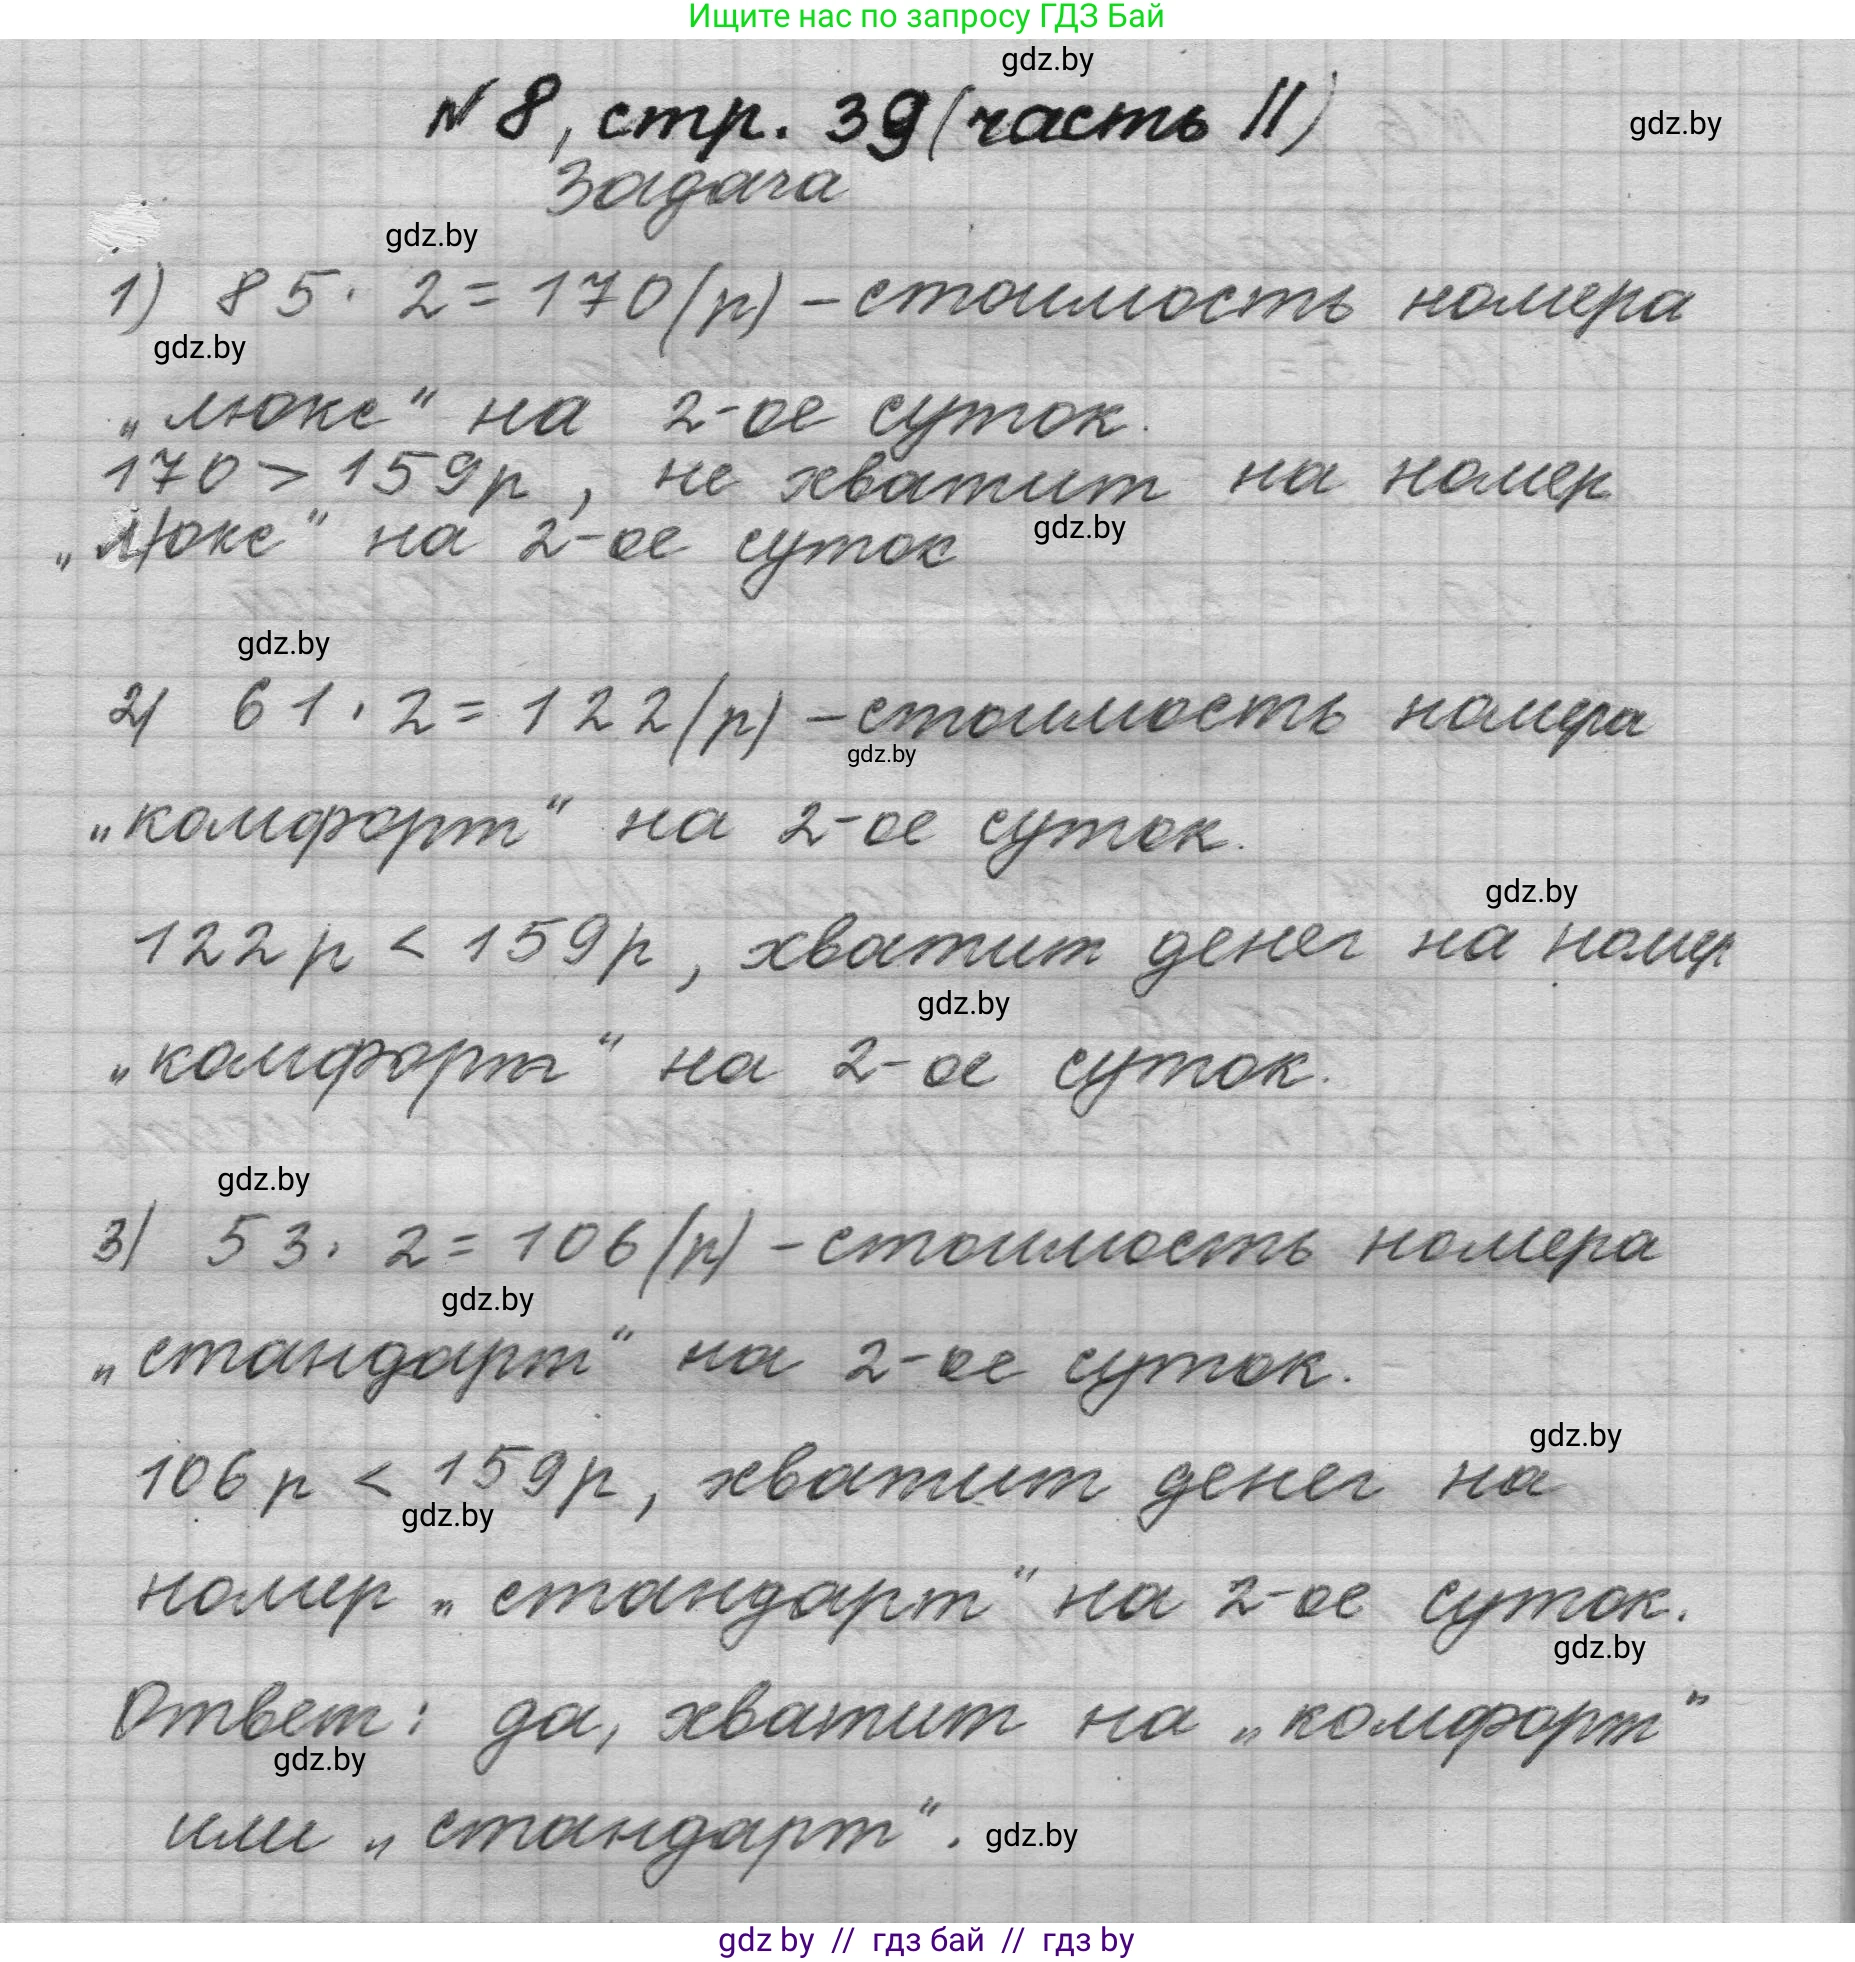 Ищите нас по запросу ГДЗ Бай
gdz.by
№ 8, стр. 39 (часть II)
gdz.by
Задача
gdz.by
1) 85 · 2 = 170 (р) – стоимость номера
gdz.by
„люкс“ на 2-ое суток.
170 > 159 р, не хватит на номер
„люкс“ на 2-ое суток
gdz.by
gdz.by
2) 61 · 2 = 122 (р) – стоимость номера
gdz.by
„комфорт“ на 2-ое суток.
gdz.by
122 р < 159 р, хватит денег на номер
gdz.by
„комфорт“ на 2-ое суток.
gdz.by
3) 53 · 2 = 106 (р) – стоимость номера
gdz.by
„стандарт“ на 2-ое суток.
gdz.by
106 р < 159 р, хватит денег на
gdz.by
номер „стандарт“ на 2-ое суток.
gdz.by
Ответ: да, хватит на „комфорт“
gdz.by
или „стандарт“.
gdz.by
gdz by // гдз бай // гдз by